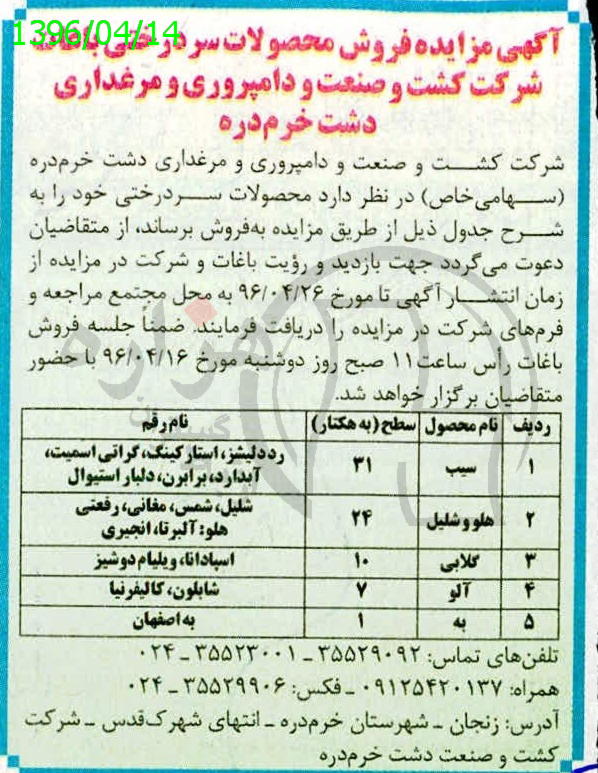 1396/04/14
آگهی مزایده فروش محصولات سردرختی باغات
شرکت کشت و صنعت و دامپروری و مرغداری
دشت خرم‌دره
شرکت کشت و صنعت و دامپروری و مرغداری دشت خرم‌دره
(سهامی‌خاص) در نظر دارد محصولات سردرختی خود را به
شرح جدول ذیل از طریق مزایده به‌فروش برساند، از متقاضیان
دعوت می‌گردد جهت بازدید و رؤیت باغات و شرکت در مزایده از
زمان انتشار آگهی تا مورخ ۹۶/۰۴/۲۶ به محل مجتمع مراجعه و
فرم‌های شرکت در مزایده را دریافت فرمایند. ضمناً جلسه فروش
باغات رأس ساعت ۱۱ صبح روز دوشنبه مورخ ۹۶/۰۴/۱۶ با حضور
متقاضیان برگزار خواهد شد.
ردیف نام محصول سطح (به هکتار) نام رقم
۱ سیب ۳۱ رد دلیشز، استارکینگ، گرانی اسمیت،
آیدارد، برابرن، دلبار استیوال
۲ هلو و شلیل ۲۴ شلیل، شمس، مغانی، رفعتی
هلو: آلبرتا، انجیری
۳ گلابی ۱۰ اسپادانا، ویلیام دوشیز
۴ آلو ۷ شابلون، کالیفرنیا
۵ به ۱ به اصفهان
تلفن‌های تماس: ۳۵۵۲۹۰۹۲ ـ ۳۵۵۲۳۰۰۱ ـ ۰۲۴
همراه: ۰۹۱۲۵۴۲۰۱۳۷ ـ فکس: ۳۵۵۲۹۹۰۶ ـ ۰۲۴
آدرس: زنجان ـ شهرستان خرم‌دره ـ انتهای شهرک‌قدس ـ شرکت
کشت و صنعت دشت خرم‌دره
هزاره